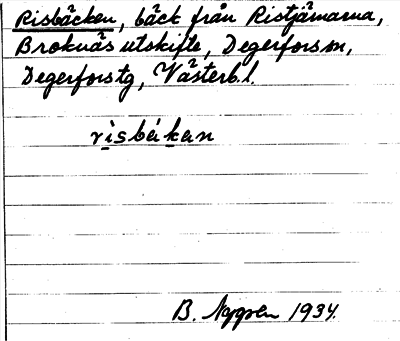 Risbäcken, bäck från Ristjärnarna,
Broknäs utskifte, Degerforssn,
Degerforstg, Västerb.l.
risbäkan
B. Nygren 1934.